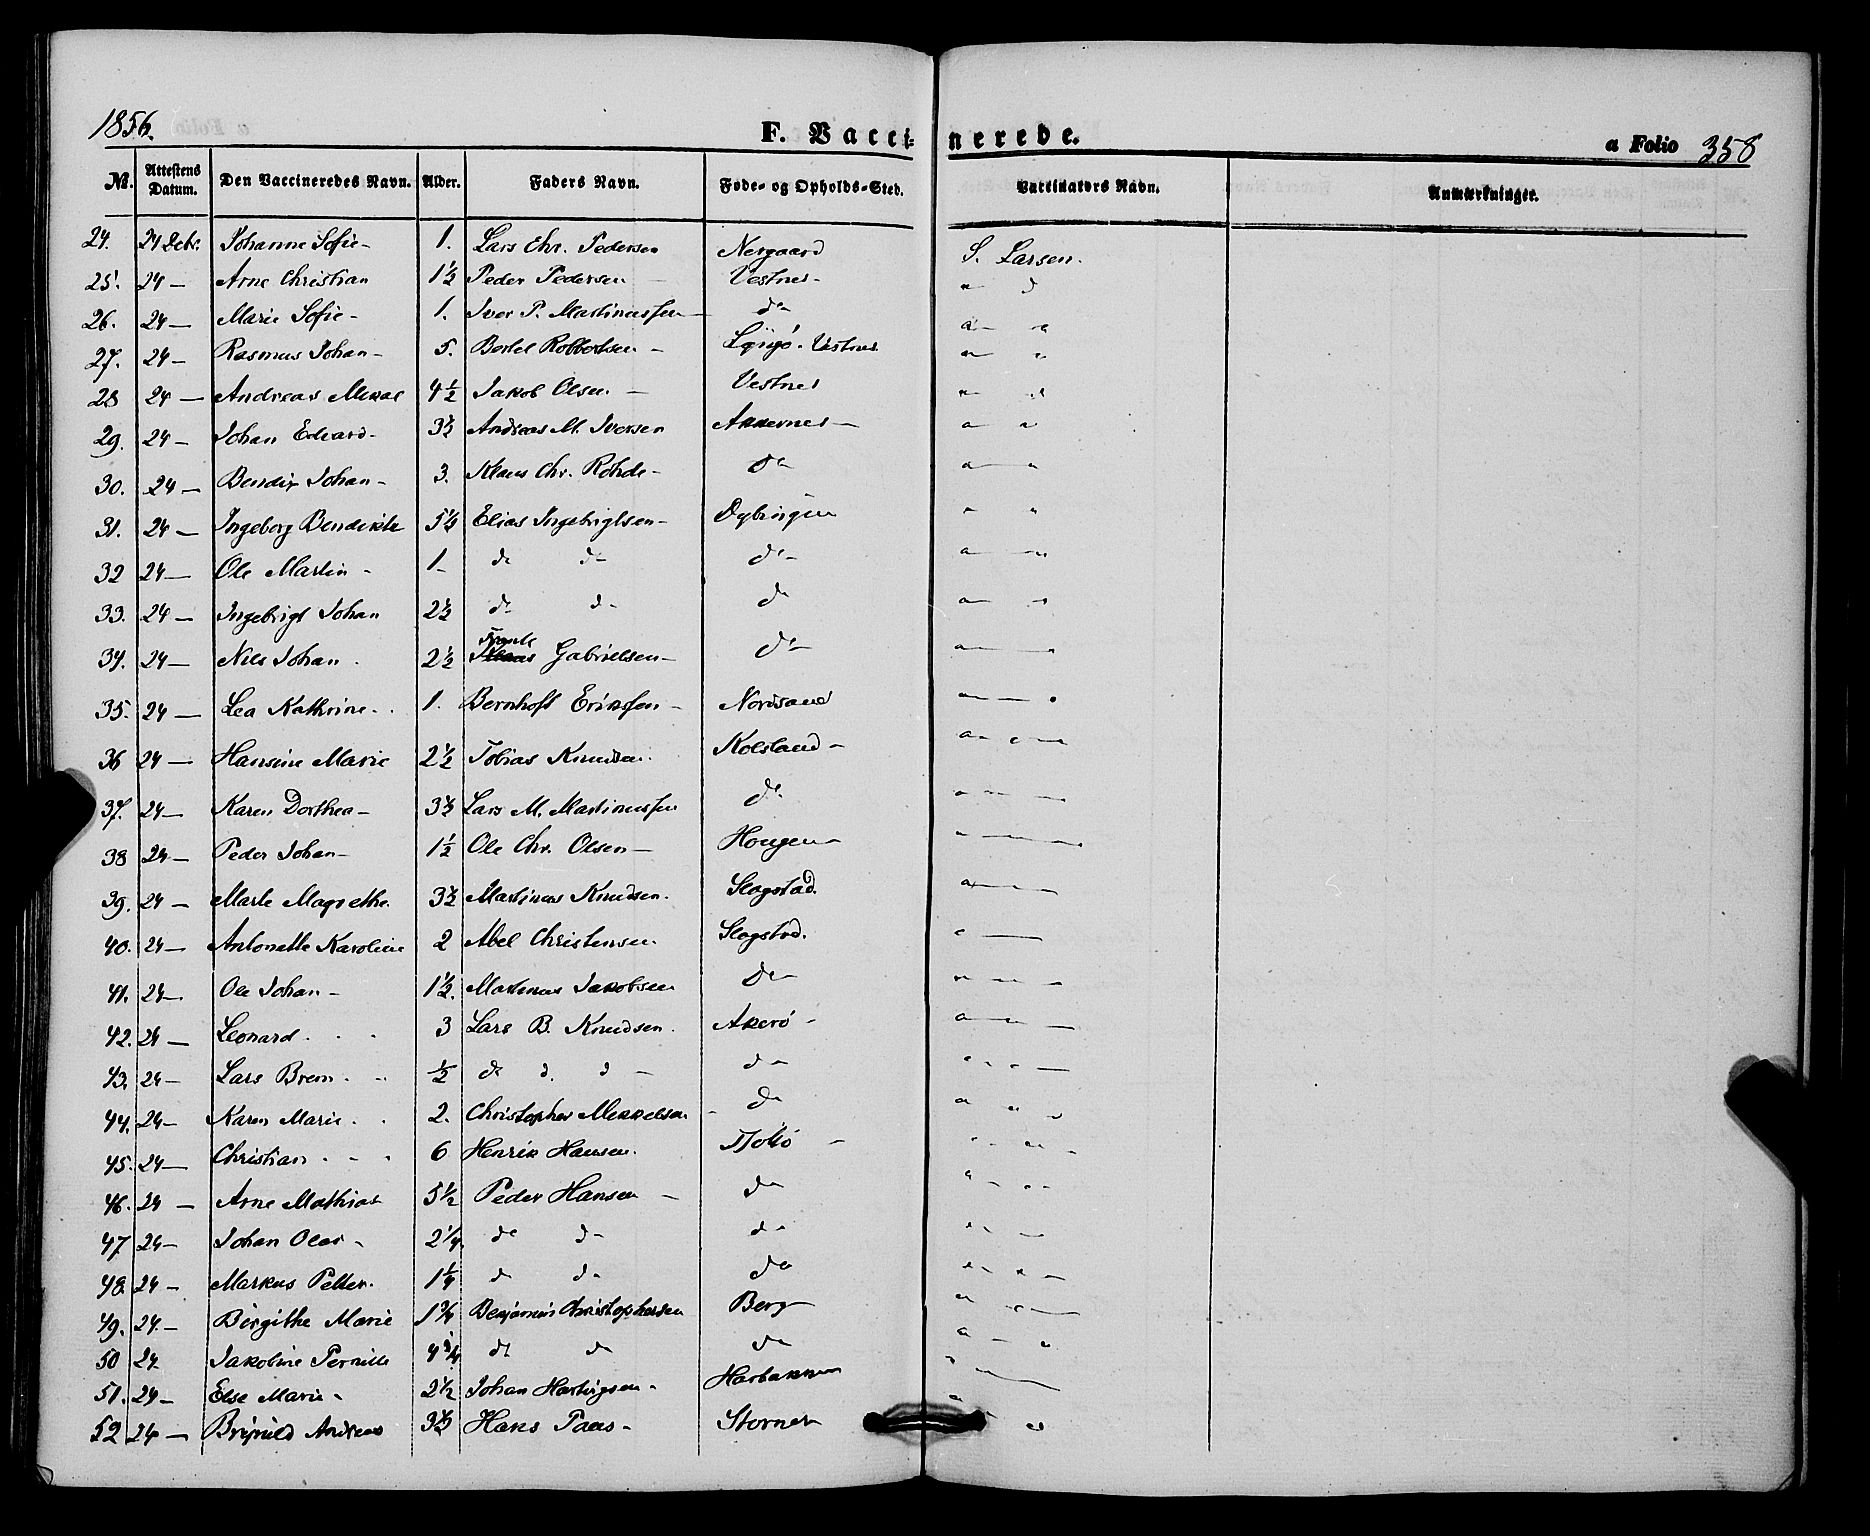 1856.
F. Vaccinerede.
a Folio 358
No. Attestens Datum. Den Vaccineredes Navn. Alder. Faders Navn. Føde- og Opholds-Sted. Vaccinators Navn. Anmærkninger.
24. 24 Debr. Johanne Sofie - 1. Lars Chr. Pedersen Nergaard S. Larsen.
25. 24 - Arne Christian 1½ Peder Pedersen Vestnes - " d
26. 24 - Marie Sofie - 1. Iver P. Martinussen do " "
27. 24 - Rasmus Johan - 5. Bertel Robbertsen - Vestnes " "
28 24 - Andreas Mekal 4½ Jakob Olsen - Vestnes " "
29. 24 - Johan Edvard - 3½ Andreas M. Iversen Akkernes - " "
30. 24 - Bendix Johan - 3. Klaus Chr. Rohde - do " "
31. 24 - Ingeborg Bendikte 5½ Elias Ingebrigtsen - " "
32 24 - Ole Martin - 1 - do do do - " "
33. 24 - Ingebrigt Johan 2½ do do do " "
34. 24 - Nils Johan - 2½ Gabrielsen - do " "
35. 24 - Lea Kathrine - 1. Bernhoft Erikssen - Nordsand " "
36 24 - Hansine Marie 2½ Tobias Knudsen Kolsland - " "
37. 24 - Karen Dorthea - 3½ Lars M. Martinussen do " "
38 24 - Peder Johan - 1½ Ole Chr. Olsen - Hougen - " "
39. 24 - Marle Magrethe. 3½ Martinus Knudsen. Slogstad. " "
40. 24 - Antonette Karoline 2 Abel Christensen Slogstad. " "
41. 24 - Ole Johan - 1½. Martinus Jakobsen do - " "
42. 24 - Leonard - - - 3 Lars B. Knudsen. Akerö - " "
43. 24 - Lars Brem - - ½ do d. d - do - " "
44. 24 - Karen Marie - - 2. Christopher Mekkelsen - do " "
45. 24 - Christian - - - 6 Henrik Hansen. - " "
46. 24 - Arne Mathias 5½ Peder Hansen - do " "
47 24 - Johan Olai - 2¼ do do - do " "
48. 24 - Markus Petter. 1¼ do do do " "
49. 24 - Birgithe Marie 1¾ Benjamin Christophersen Berg " "
50 24 Jakobine Pernille 4¾ do do do " "
51. 24 - Else Marie - 2½ Johan Hartvigsen - Harbakken " "
52 24 - Andreas 3½ Hans Paas - Stornes " "